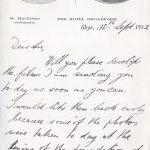 M. MACINNES.
THE HOTEL BROADFORD
Skye, 30th Sept 1912
Dear Sir,
Will you please develop
the films I am sending you
to day as soon as you can
I would like them back early
because some of the photos
were taken to day at the
of the